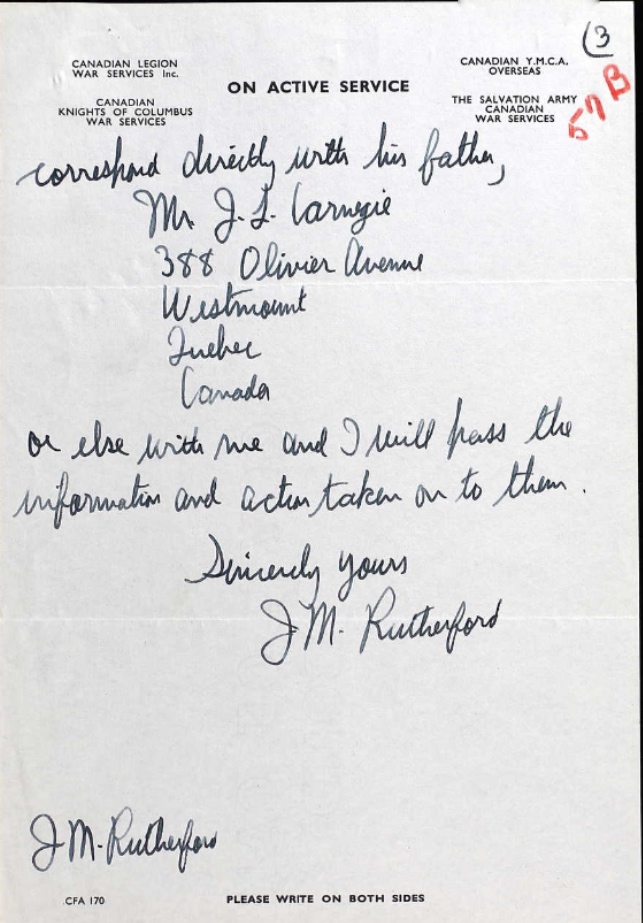 (3
57B
CANADIAN LEGION
WAR SERVICES Inc.
CANADIAN
KNIGHTS OF COLUMBUS
WAR SERVICES
ON ACTIVE SERVICE
CANADIAN Y.M.C.A.
OVERSEAS
THE SALVATION ARMY
CANADIAN
WAR SERVICES
correspond directly with his father,
Mr. J. L. Carnegie
388 Olivier Avenue
Westmount
Quebec
Canada
or else with me and I will pass the
information and action taken on to them.
Sincerely yours
J M. Rutherford
J M. Rutherford
CFA 170
PLEASE WRITE ON BOTH SIDES